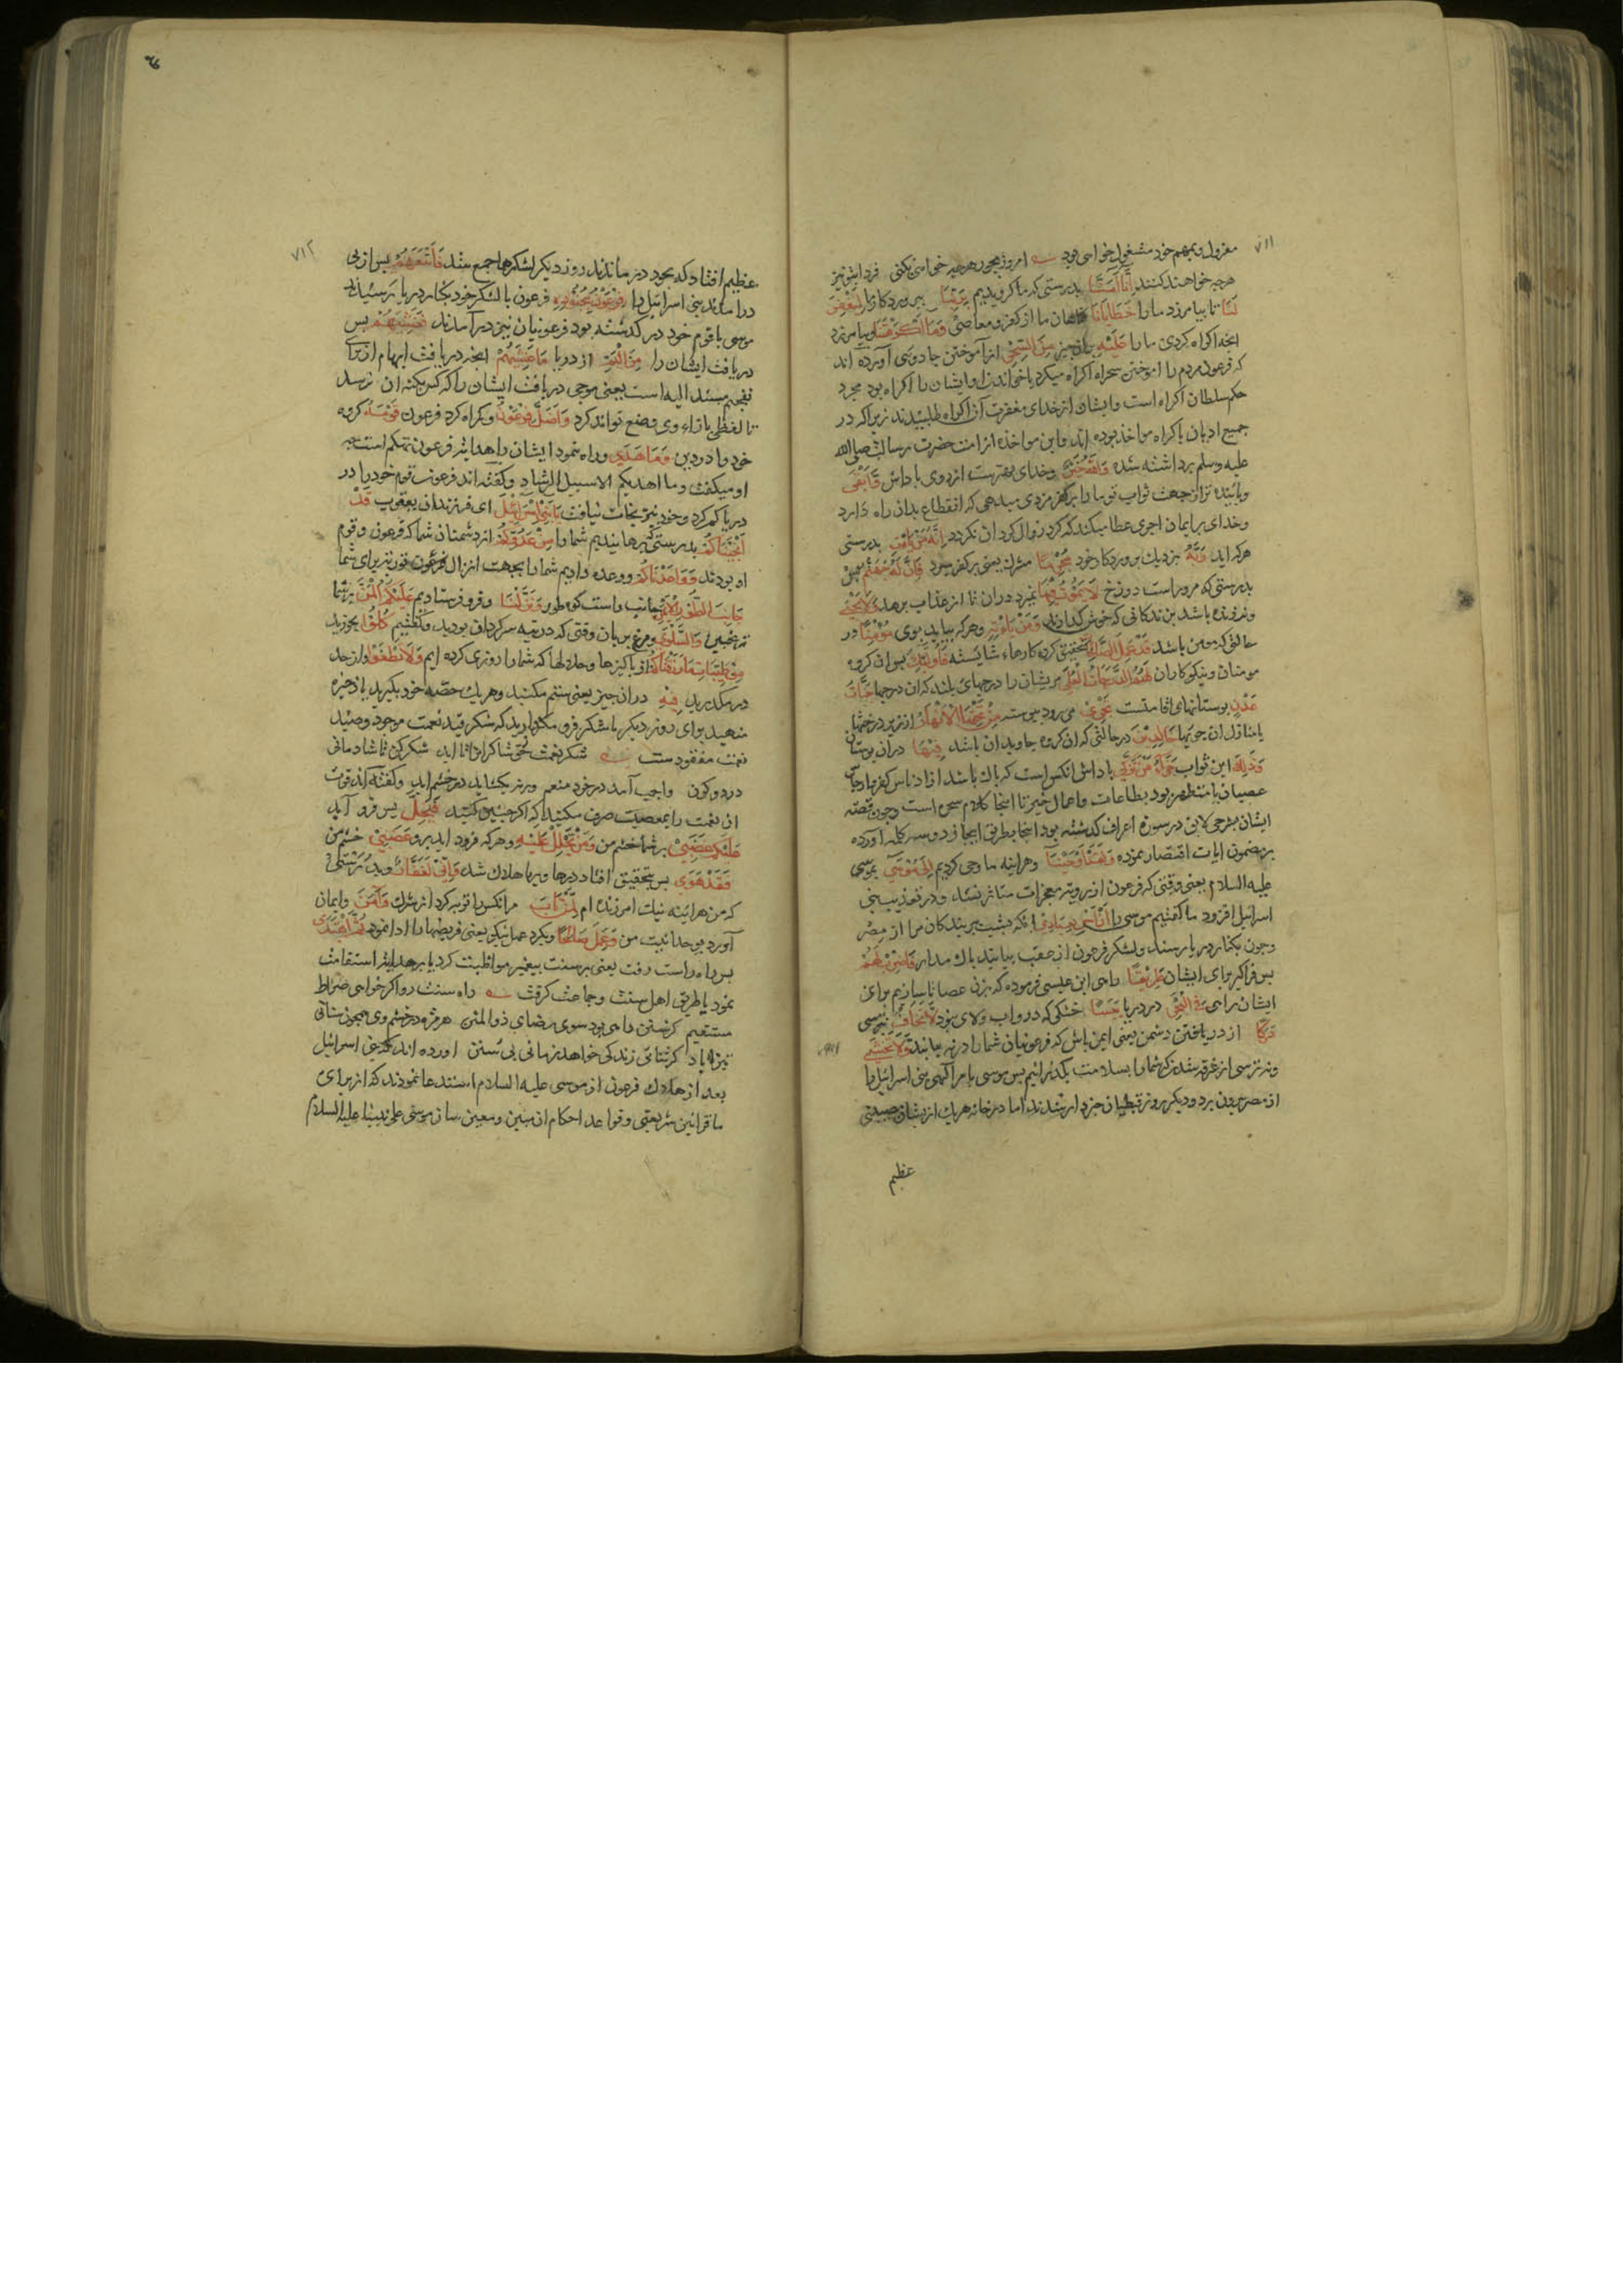 ۷۱۱
معزول و بمهم خود مشغول خواهی بود امروز بجور هر چه خواهی بکنی فردا بتو نیز
هر چه خواهند کنند اِنَّا اٰمَنَّا بدرستی که ما گرویدیم بِرَبِّنَا بپروردکار ما لِیَغْفِرَ
لَنَا تا بیامرزد ما را خَطَایَانَا کناهان ما از کفر و معاصی وَمَا اَکْرَهْتَنَا و بیامرزد
انچه اکراه کردی ما را عَلَیْهِ بران چیز مِنَ السِّحْرِ از آموختن جادوی آورده اند
که فرعون مردم را باموختن سحر اکراه میکرد یا خواندن او ایشان را اکراه بود مجرد
حکم سلطان اکراه است و ایشان از خدای مغفرت آن اکراه طلبیدند زیرا که در
جمیع ادیان باکراه مواخذ بوده اند و این مواخذه از امت حضرت رسالت صلی الله
علیه وسلم برداشته شده وَاللّٰهُ خَیْرٌ و خدای بهترست از روی پاداش وَاَبْقٰی
و پاینده تر از جهت ثواب تو ما را بر کفر مزدی میدهی که انقطاع بدان راه دارد
و خدای بر ایمان اجری عطا میکند که کرد زوال کرد ان نکردد اِنَّهُ مَنْ یَأْتِ بدرستی
هر که اید رَبَّهُ نزدیک پروردکار خود مُجْرِمًا مشرک یعنی بر کفر میرد فَاِنَّ لَهُ جَهَنَّمَ پس
بدرستی که مر وراست دوزخ لَا یَمُوتُ فِیهَا نمیرد دران تا از عذاب برهد وَلَا یَحْیٰی
و نه زنده باشد بزندکانی که خوش کذراند وَمَنْ یَأْتِهِ و هر که بیاید بوی مُؤْمِنًا در
حالتی که مومن باشد قَدْ عَمِلَ الصَّالِحَاتِ بتحقیق کرده کارهاء شایسته فَاُولٰئِکَ پس ان کروه
مومنان و نیکوکاران لَهُمُ الدَّرَجَاتُ الْعُلٰی مریشان را درجهای بلند که ان درجها جَنَّاتُ
عَدْنٍ بوستانهای اقامتست تَجْرِی می رود پیوسته مِنْ تَحْتِهَا الْاَنْهَارُ از زیر درختهای
یا منازل ان جویها خَالِدِینَ درحالتی که ان کروه جاویدان باشد فِیهَا دران بوستان
وَذٰلِکَ این ثواب جَزَاءُ مَنْ تَزَکّٰی پاداش انکس است که پاک باشد از ادناس کفر و ارجاس
عصیان یا متطهر بود بطاعات و اعمال خیر تا اینجا کلام سحره است و چون قصه
ایشان بشرحی لایق در سوره اعراف کذشته بود اینجا بطریق ایجاز دو سه کلمه اورده
بر مضمون ایات اقتصار نموده وَلَقَدْ اَوْحَیْنَا و هراینه ما وحی کردیم اِلٰی مُوسٰی بموسی
علیه السلام یعنی وقتی که فرعون از رویت معجزات متاثر نشد و در تعذیب بنی
اسرائیل افزود ما گفتیم موسی را اَنْ اَسْرِ بِعِبَادِی انکه بشب بر بندکان مرا از مصر
و چون بکنار دریا رسند و لشکر فرعون از عقب بیاید باک مدار فَاضْرِبْ لَهُمْ
پس فراگیر برای ایشان طَرِیقًا راهی ابن عیسی فرموده که بزن عصا تا بسازیم برای
ایشان راهی فِی الْبَحْرِ در دریا یَبَسًا خشکی که درو آب و لای نبود لَا تَخَافُ نترسی
دَرَکًا از دریافتن دشمن یعنی ایمن باش که فرعونیان شما را در نیابند وَلَا تَخْشٰی
و نه ترسی از غرقه شدن که شما را بسلامت بکذرانیم پس موسی بامر الهی بنی اسرائیل را
از مصر بیرون برد و دیکر روز قبطیان خبردار شدند اما در خانه هر یک از ایشان مصیبتی
عظیم
۷۱۲
عظیم افتاد که بخود در ماندند روز دیکر لشکرها جمع شد فَاَتْبَعَهُمْ پس از پی
درامدند بنی اسرائیل را فِرْعَوْنُ بِجُنُودِهِ فرعون با لشکر خود بکنار دریا رسیدند
موسی با قوم خود در کذشته بود فرعونیان نیز درآمدند فَغَشِیَهُمْ پس
دریافت ایشان را مِنَ الْیَمِّ از دریا مَا غَشِیَهُمْ انچه دریافت ابهام از برای
تفخیم مسند الیه است یعنی موجی دریافت ایشان را که کس بکنه ان نرسد
تا لفظی بازاء وی وضع تواند کرد وَاَضَلَّ فِرْعَوْنُ و کمراه کرد فرعون قَوْمَهُ کروه
خود را در دین وَمَا هَدٰی و راه ننمود ایشان را هدایت فرعون تهکم است چه
او میکفت وما اهدیکم الا سبیل الرشاد و گفته اند فرعون قوم خود را در
دریا کم کرد و خود نیز نجات نیافت یَا بَنِی اِسْرَائِیلَ ای فرزندان یعقوب قَدْ
اَنْجَیْنَاکُمْ بدرستی که رهانیدیم شما را مِنْ عَدُوِّکُمْ از دشمنان شما که فرعون و قوم
او بودند وَوَاعَدْنَاکُمْ و وعده دادیم شما را بجهت انزال توریت برای شما
جَانِبَ الطُّورِ الْاَیْمَنَ بجانب راست کوه طور وَنَزَّلْنَا و فرو فرستادیم عَلَیْکُمُ الْمَنَّ بر شما
ترنجبین وَالسَّلْوٰی و مرغ بریان وقتی که در تیه سرکردان بودید و گفتیم کُلُوا بخورید
مِنْ طَیِّبَاتِ مَا رَزَقْنَاکُمْ از پاکیزها و حلالها که شما را روزی کرده ایم وَلَا تَطْغَوْا و از حد
در مکذرید فِیهِ دران چیز یعنی ستم مکنید و هر یک حصه خود بکیرید یا ذخیره
منهید برای روز دیکر یا شکر فرو مکذارید که شکر قید نعمت موجود و صید
نعمت مفقودست شکر نعمت شاکرا شکر کن تا شادمانی
در دو کون واجب آمد بر خود منعم و ورنه بکشاید در خشم ابد و گفته اند قوت
ان نعمت را بمعصیت صرف مکنید که اکر چنین کنید فَیَحِلَّ پس فرو آید
عَلَیْکُمْ غَضَبِی بر شما خشم من وَمَنْ یَحْلِلْ عَلَیْهِ و هر که فرود اید برو غَضَبِی خشم من
فَقَدْ هَوٰی پس بتحقیق افتاد در هاویه یا هلاک شد وَاِنِّی لَغَفَّارٌ و بدرستی
که من هراینه نیک امرزنده ام لِمَنْ تَابَ مر انکس را توبه کرد از شرک وَاٰمَنَ و ایمان
آورد بوحدانیت من وَعَمِلَ صَالِحًا و بکرد عمل نیکو یعنی فریضها را ادا نمود ثُمَّ اهْتَدٰی
پس راه راست رفت یعنی بر سنت پیغمبر مواظبت کرد یا بر هدایت استقامت
نمود یا طریق اهل سنت و جماعت کرفت راه سنت رو اکر خواهی صراط
مستقیم کز سنن راهی بود سوی رضای ذوالمنن هر مژه در چشم وی همچون سنانی
تیز باد کر سنانی زندکی خواهد زمانی بی سنن اورده اند که بنی اسرائیل
بعد از هلاک فرعون از موسی علیه السلام استدعا نمودند که از برای
ما قوانین شریعتی و قواعد احکام ان مبین و معین ساز موسی علی نبینا علیه السلام